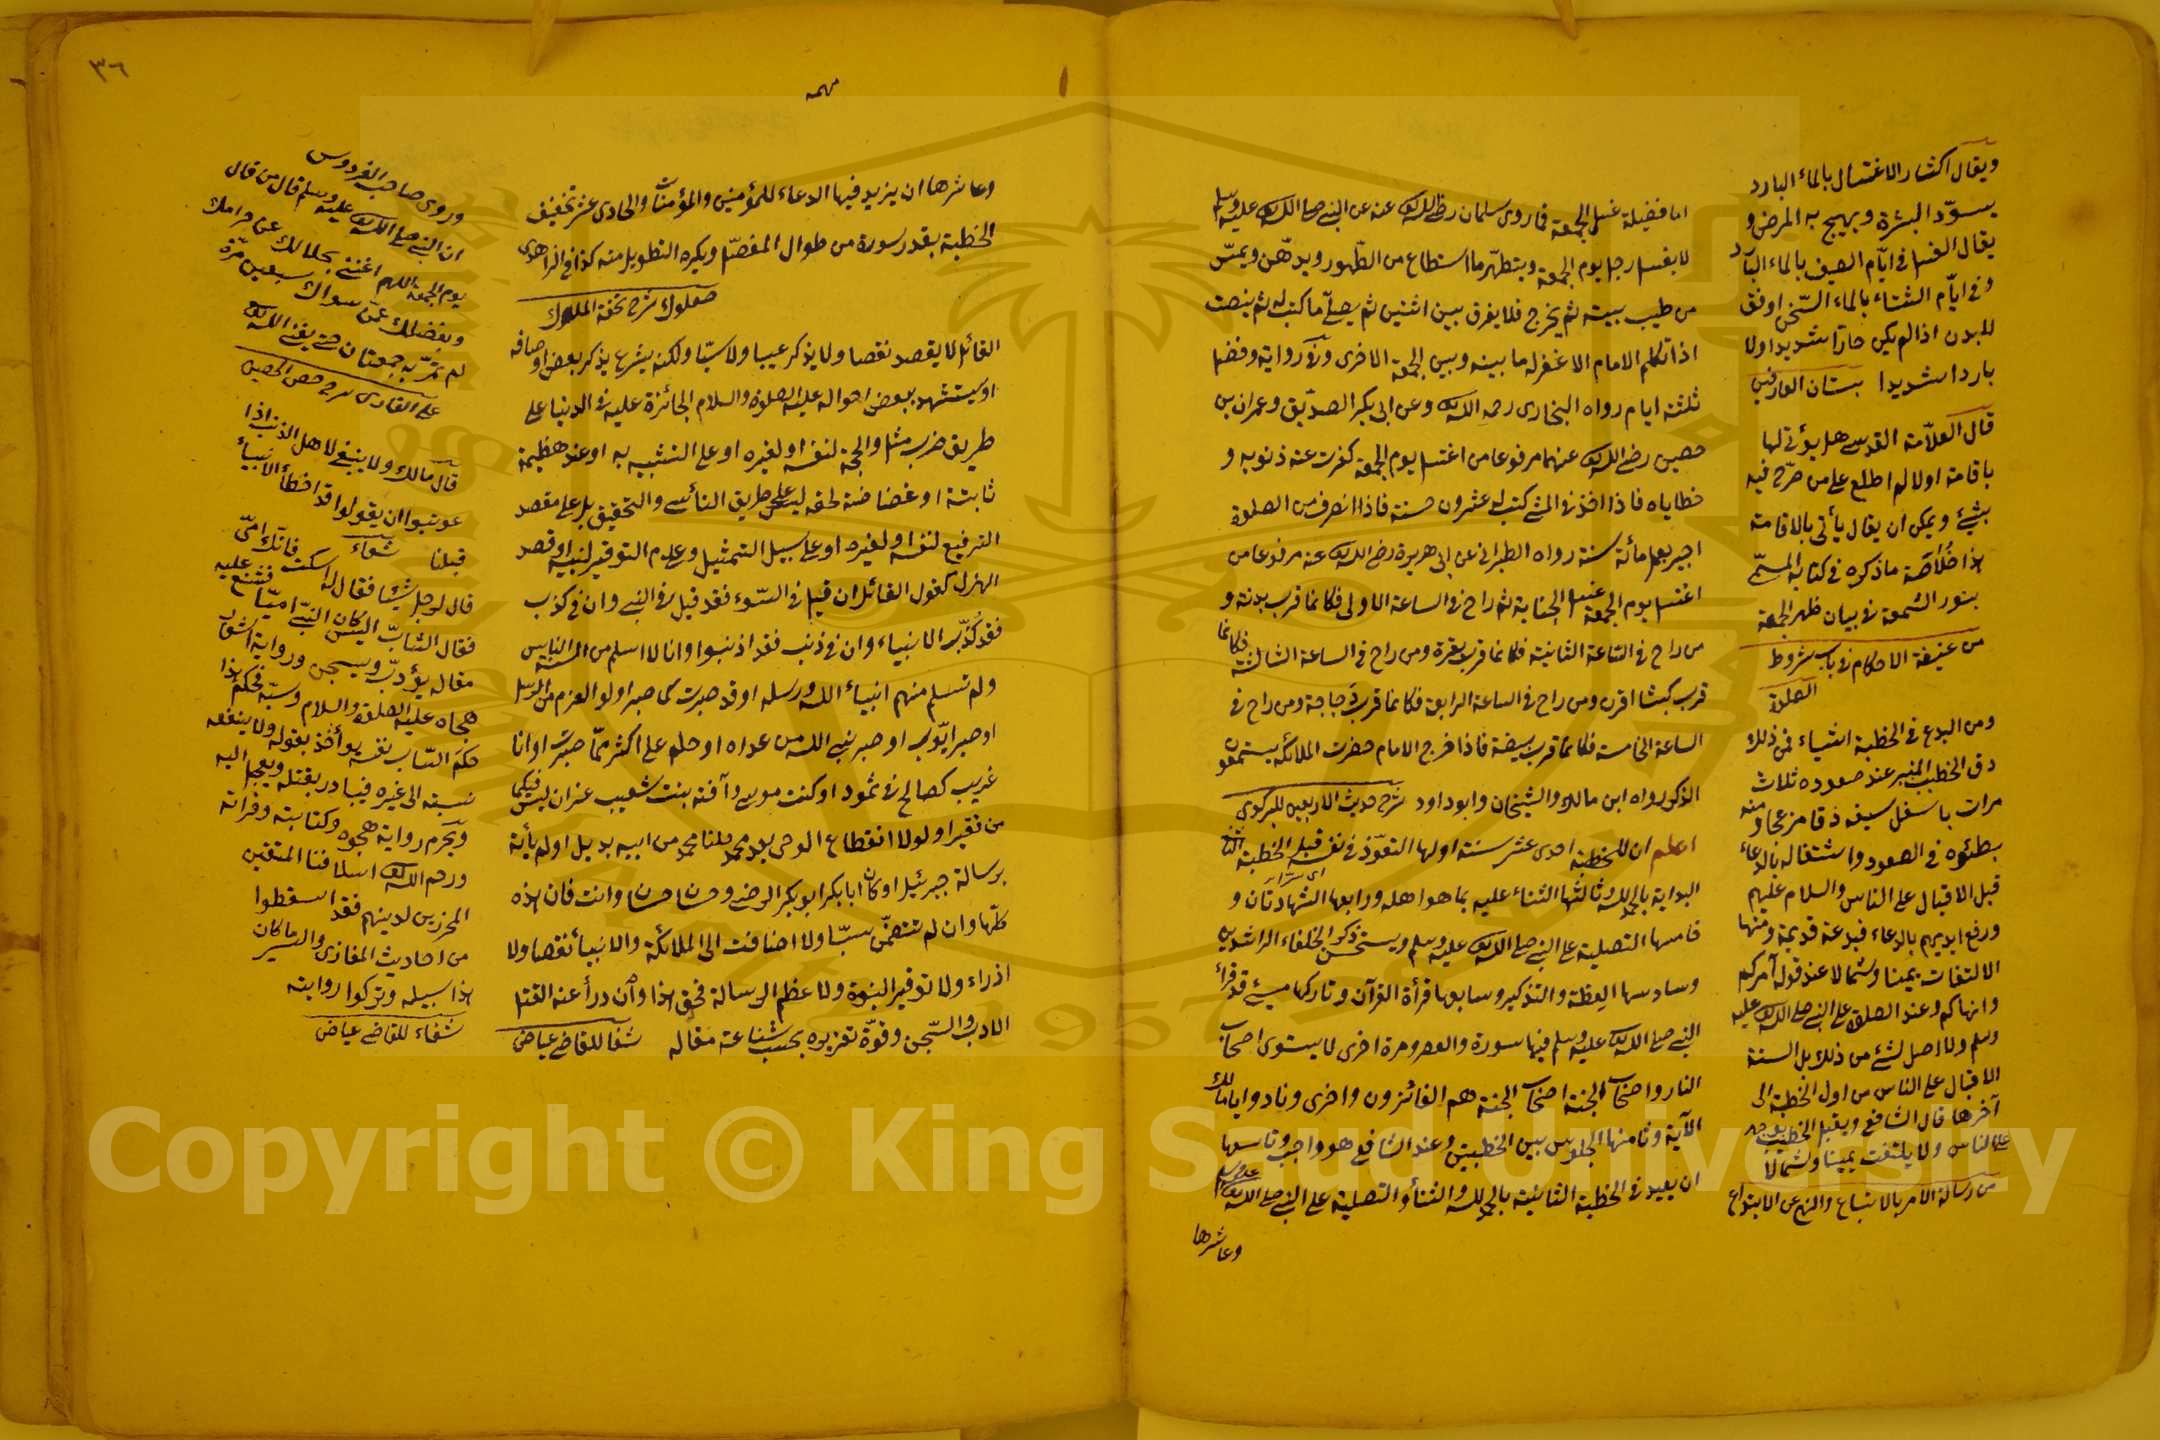 ويقال اكثار الاغتسال بالماء البارد
يسوّد البشرة ويهيج به المرض و
يقال الغسل في ايّام الصيف بالماء البارد
وفي ايّام الشتاء بالماء السّخن اوفق
للبدن اذا لم يكن حارّا شديدا ولا
باردا شديدا بستان العارفين
قال العلّامة القدسي هل يؤتى لها
باقامة اولا لم اطلع على من صرّح فيه
بشئ ويمكن ان يقال يأتي بالاقامة
هذا خلاصة ما ذكره في كتابه المسمّى
بنور الشمعة في بيان ظهر الجمعة
من الاحكام في باب شروط
الصلوة
ومن البدع في الخطبة اشياء فمن ذلك
دق الخطيب المنبر عند صعوده ثلاث
مرات باسفل سيفه دقا مزعجا ومنه
بطئوه في الصعود واشتغاله بالدعاء
قبل الاقبال على الناس والسلام عليهم
ورفع ايديهم بالدعاء فبدعة قديمة ومنها
الالتفات يمينا وشمالا عند قوله آمركم
وانهاكم وعند الصلوة على النبي صلى الله عليه
وسلم ولا اصل لشئ من ذلك بل السنة
الاقبال على الناس من اول الخطبة الى
آخرها قال الشافعي ويقبل الخطيب بوجهه
على الناس ولا يلتفت يمينا وشمالا
من رسالة الامر بالاتباع والنهي عن الابتداع
اما فضيلة غسل الجمعة فما روى سلمان رضي الله عنه عن النبي صلى الله عليه وسلم
لا يغتسل رجل يوم الجمعة ويتطهّر ما استطاع من الطّهور ويدّهن ويمسّ
من طيب بيته ثم يخرج فلا يفرق بين اثنين ثم يصلّي ما كتب له ثم ينصت
اذا تكلم الامام الا غفر له ما بينه وبين الجمعة الاخرى وفي رواية وفضل
ثلثة ايام رواه البخاري رحمه الله وعن ابي بكر الصدّيق وعمران بن
حصين رضي الله عنهما مرفوعا من اغتسل يوم الجمعة كفرت عنه ذنوبه و
خطاياه فاذا اخذ في المشي كتب له عشرون حسنة فاذا انصرف من الصلوة
اجير بعمل مأئة سنة رواه الطبراني عن ابي هريرة رضي الله عنه مرفوعا من
اغتسل يوم الجمعة غسل الجنابة ثم راح في الساعة الاولى فكانما قرب بدنة و
من راح في الساعة الثانية فكانما قرب بقرة ومن راح في الساعة الثالثة فكانما
قرب كبشا اقرن ومن راح في الساعة الرابعة فكانما قرب دجاجة ومن راح في
الساعة الخامسة فكانما قرب بيضة فاذا خرج الامام حضرت الملائكة يستمعون
الذكر رواه ابن مالك والشيخان وابو داود شرح حديث الاربعين للبركوي
اعلم ان للخطبة احدى عشر سنة اولها التعوّذ في نفسه قبل الخطبة الثاني
اي سرّا
البداية بالحمد لله ثالثها الثناء عليه بما هو اهله ورابعها الشهادتان و
خامسها التصلية على النبي صلى الله عليه وسلم ويستحسن ذكر الخلفاء الراشدين
وسادسها العظة والتذكير وسابعها قرأة القرآن وتاركها مسئ قد قرأ
النبي صلى الله عليه وسلم فيها سورة والعصر ومرة اخرى لا يستوي اصحاب
النار واصحاب الجنة اصحاب الجنة هم الفائزون واخرى ونادوا يا مالك
الآية وثامنها الجلوس بين الخطبتين وعند الشافعي هو واجب وتاسعها
ان يعيد في الخطبة الثانية بالحمد لله والثناء والتصلية على النبي صلى الله عليه وسلم
وعاشرها
٣٦
مهمه
وعاشرها ان يزيد فيها الدعاء للمؤمنين والمؤمنات والحادى عشر تخفيف
الخطبة بقدر سورة من طوال المفصّل ويكره التطويل منه كذا في الزاهدي
صعلوك شرح تحفة الملوك
القائل لا يقصد نقصا ولا يذكر عيبا ولا سبّا ولكنه ينزع بذكر بعض اوصافه
او يستشهد ببعض احواله عليه الصلوة والسلام الجائزة عليه في الدنيا على
طريق ضرب مثل والحجة لنفسه او لغيره او على التشبيه به او عند هظيمة
نابتة او غضاضة لحقه ليس على طريق التأسي والتحقيق بل على مقصد
الترفيع لنفسه او لغيره او على سبيل التمثيل وعدم التوقير لنبيه او قصد
الهزل كقول القائل ان قيل في السّوء فقد قيل في النبي وان في كذب
فقد كذّب الانبياء وان في ذنب فقد اذنبوا وانا لا اسلم من السنة الناس
ولم تسلم منهم انبياء الله ورسله او قد صبرت كما صبر اولو العزم من الرسل
او صبر ايّوب او صبر نبي الله من عداه او حلم على اكثر ممّا صبرت او انا
غريب كصالح في ثمود او كنت موسى وآفته بنت شعيب غير ان ليس فيكما
من فقير او لولا انقطاع الوحي بعد محمد قلنا محمد من ابيه بديل او لم يأته
برسالة جبرئيل او كان ابا بكر ابو بكر الرضى وحسان حسان وانت فان هذه
كلها وان لم تتضمّن سبّا ولا اضافت الى الملائكة والانبياء نقصا ولا
ازراء ولا توقير النبوة ولا عظم الرسالة فحق هذا وان درأ عنه القتل
الادب والسّجن وقوّة تعزيره بحسب شناعة مقاله شفا للقاضي عياض
وروى صاحب الفردوس
ان النبي صلى الله عليه وسلم قال من قال
يوم الجمعة اللهم اغنني بحلالك عن حرامك
وبفضلك عمّن سواك سبعين مرّة
لم تمرّ به جمعتان حتى يغنيه الله
على القاري شرح حصن الحصين
قال مالك ولا ينبغي لاهل الذنب اذا
عوتبوا ان يقولوا قد اخطأ الانبياء
قبلنا شفاء
قال لرجل شيئا فقال له اسكت فانك امّي
فقال الشابّ اليس كان النبي امّيّا فشنع عليه
مقاله يؤدب ويسجن ورواية اشعار
هجاه عليه الصلوة والسلام وسبّه فحكم هذا
حكم السّاب نفسه يؤاخذ بقوله ولا ينفعه
نسبته الى غيره فيبادر بقتله ويعجل اليه
ويحرم رواية هجوه وكتابته وقرائه
ورحم الله اسلافنا المتقين
المحرزين لدينهم فقد اسقطوا
من احاديث المغازي والسير ما كان
هذا سبيله وتركوا روايته
شفاء للقاضي عياض
Copyright © King Saud University
1957